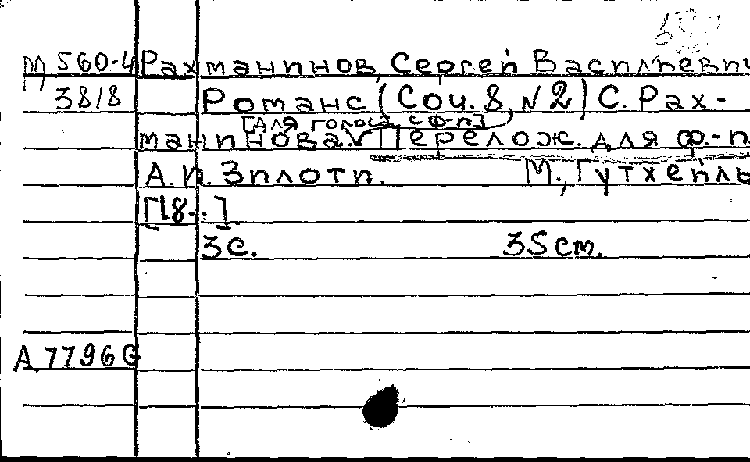 М 560-4 Рахманинов, Сергей Васильевич
3818 Романс (Соч. 8, N2) С. Рах-
[для голоса с ф-п]
манинова. Перелож. для ф.-п.
А.И. Зилоти. М., Гутхейль
[18-.]
3 с. 35 см.
А 7796 G